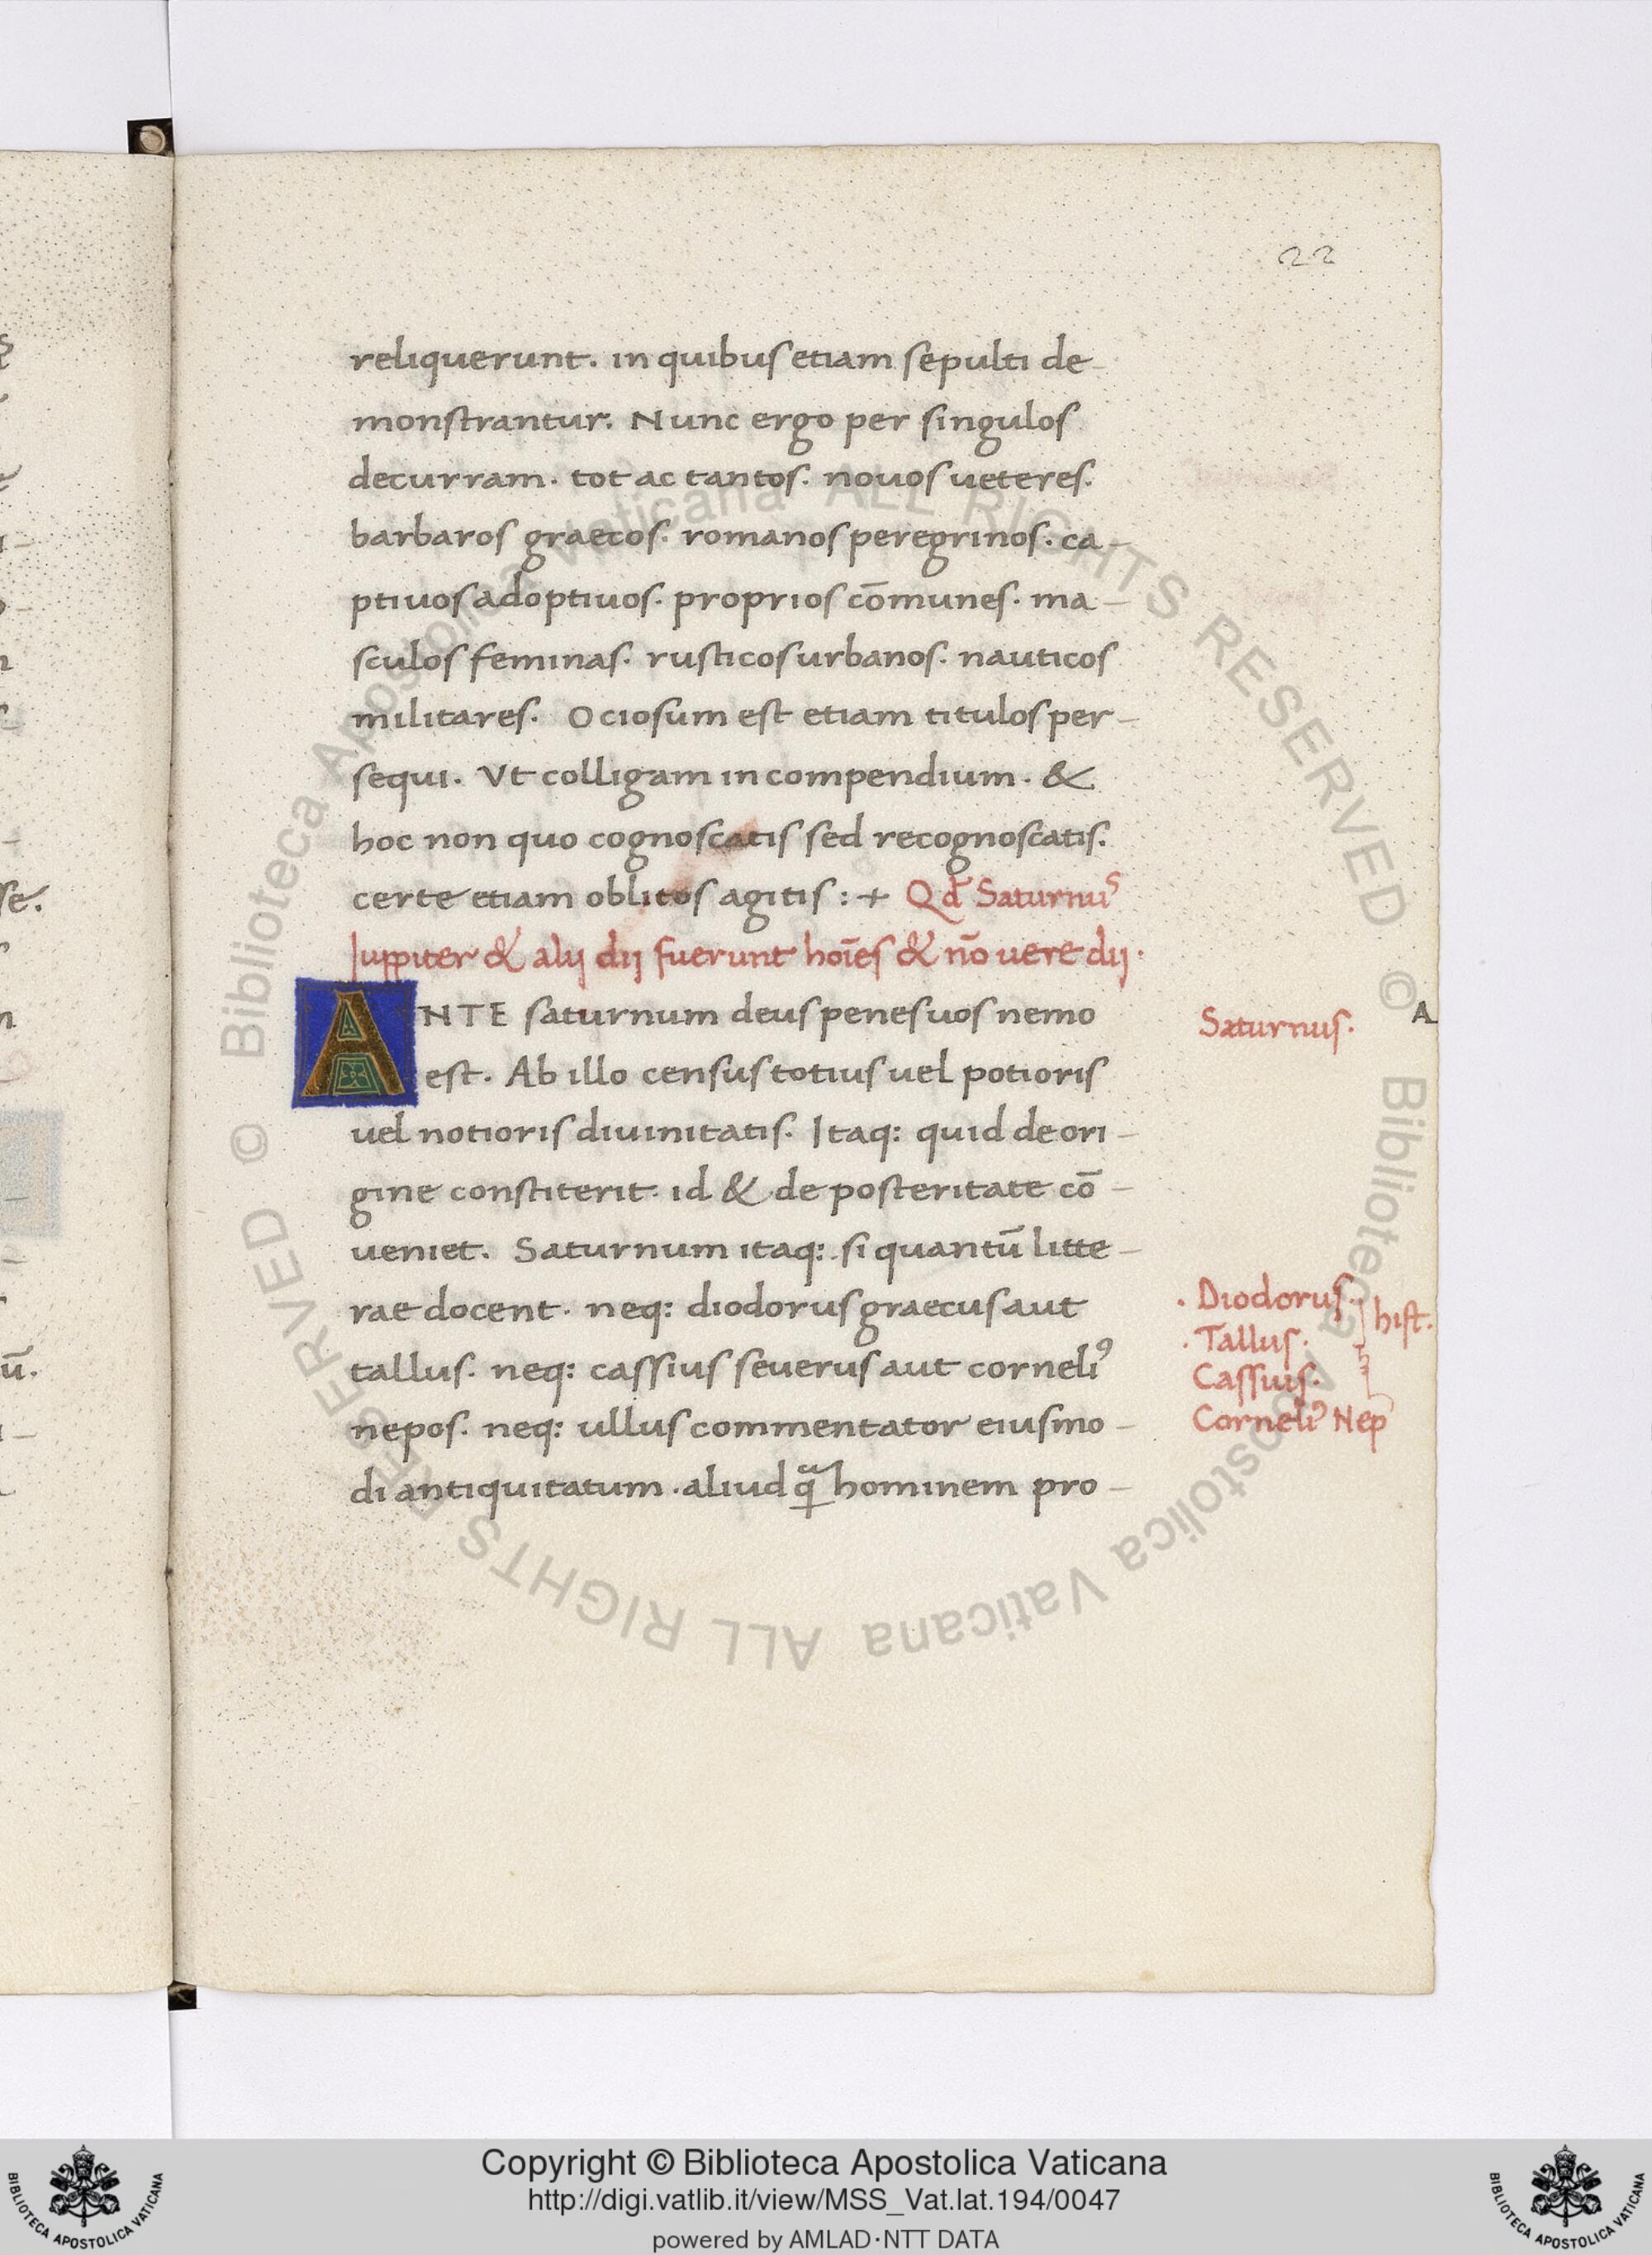 22
reliquerunt. in quibus etiam sepulti de-
monstrantur. Nunc ergo per singulos
decurram. tot ac tantos. nouos ueteres.
barbaros graecos. romanos peregrinos. ca-
ptiuos adoptiuos. proprios cōmunes. ma-
sculos feminas. rusticos urbanos. nauticos
militares. Ociosum est etiam titulos per-
sequi. Vt colligam in compendium. &
hoc non quo cognoscatis sed recognoscatis.
certe etiam oblitos agitis :+ Qđ Saturnuˢ
Iuppiter & alij dij fuerunt hoīes & nō uere dij.
ANTE saturnum deus penes uos nemo
Saturnus.
A
est. Ab illo census totius uel potioris
uel notioris diuinitatis. Itaq: quid de ori-
gine constiterit. id & de posteritate cō-
ueniet. Saturnum itaq: si quantū litte-
rae docent. neq: diodorus graecus aut
tallus. neq: cassius seuerus aut corneliꝰ
nepos. neq: ullus commentator eiusmo-
di antiquitatum. aliud qᷓ hominem pro-
. Diodorus.
. Tallus.
Cassius.
Corneliꝰ Nep
hist.
se.
ū.
© Biblioteca Apostolica Vaticana ALL RIGHTS RESERVED © Biblioteca Apostolica Vaticana ALL RIGHTS RESERVED
Copyright © Biblioteca Apostolica Vaticana
http://digi.vatlib.it/view/MSS_Vat.lat.194/0047
powered by AMLAD·NTT DATA
BIBLIOTECA APOSTOLICA VATICANA
BIBLIOTECA APOSTOLICA VATICANA